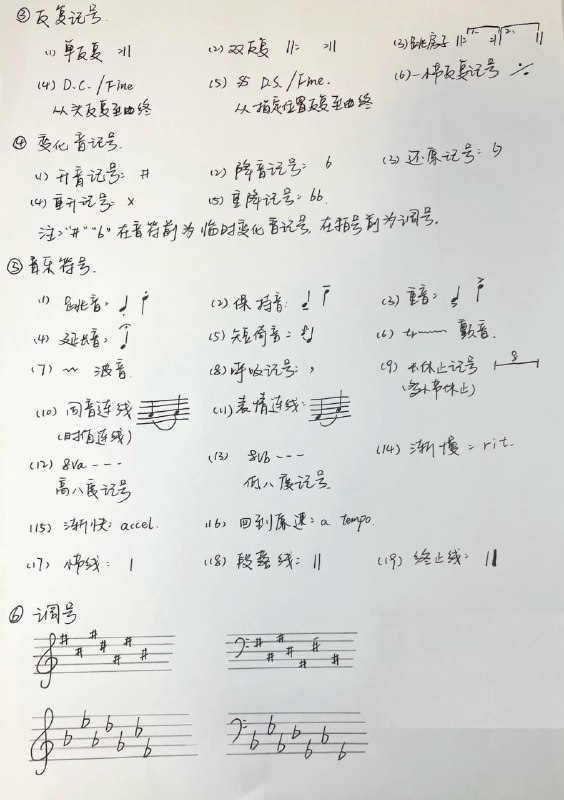 ③ 反复记号.
(1) 单反复 :|| (2) 双反复 ||: :|| (3) 跳房子 ||: 1. :|| 2. ||
(4) D.C./Fine (5) 𝄋 D.S./Fine. (6) 一小节反复记号 𝄎
从头反复至曲终 从指定位置反复至曲终
④ 变化音记号.
(1) 升音记号: # (2) 降音记号: b (3) 还原记号: ♮
(4) 重升记号: x (5) 重降记号: bb.
注: "#" "b" 在音符前为临时变化音记号, 在谱号前为调号.
⑤ 音乐符号.
(1) 跳音: (2) 保持音: (3) 重音:
(4) 延长音: (5) 短倚音: (6) tr 颤音.
(7) 波音. (8) 呼吸记号: , (9) 长休止记号 8
(多小节休止)
(10) 同音连线 (11) 表情连线:
(时值连线)
(12) 8va --- (13) 8vb --- (14) 渐慢: rit.
高八度记号 低八度记号.
(15) 渐快: accel. (16) 回到原速: a tempo.
(17) 小节线: | (18) 段落线: || (19) 终止线: ||
⑥ 调号